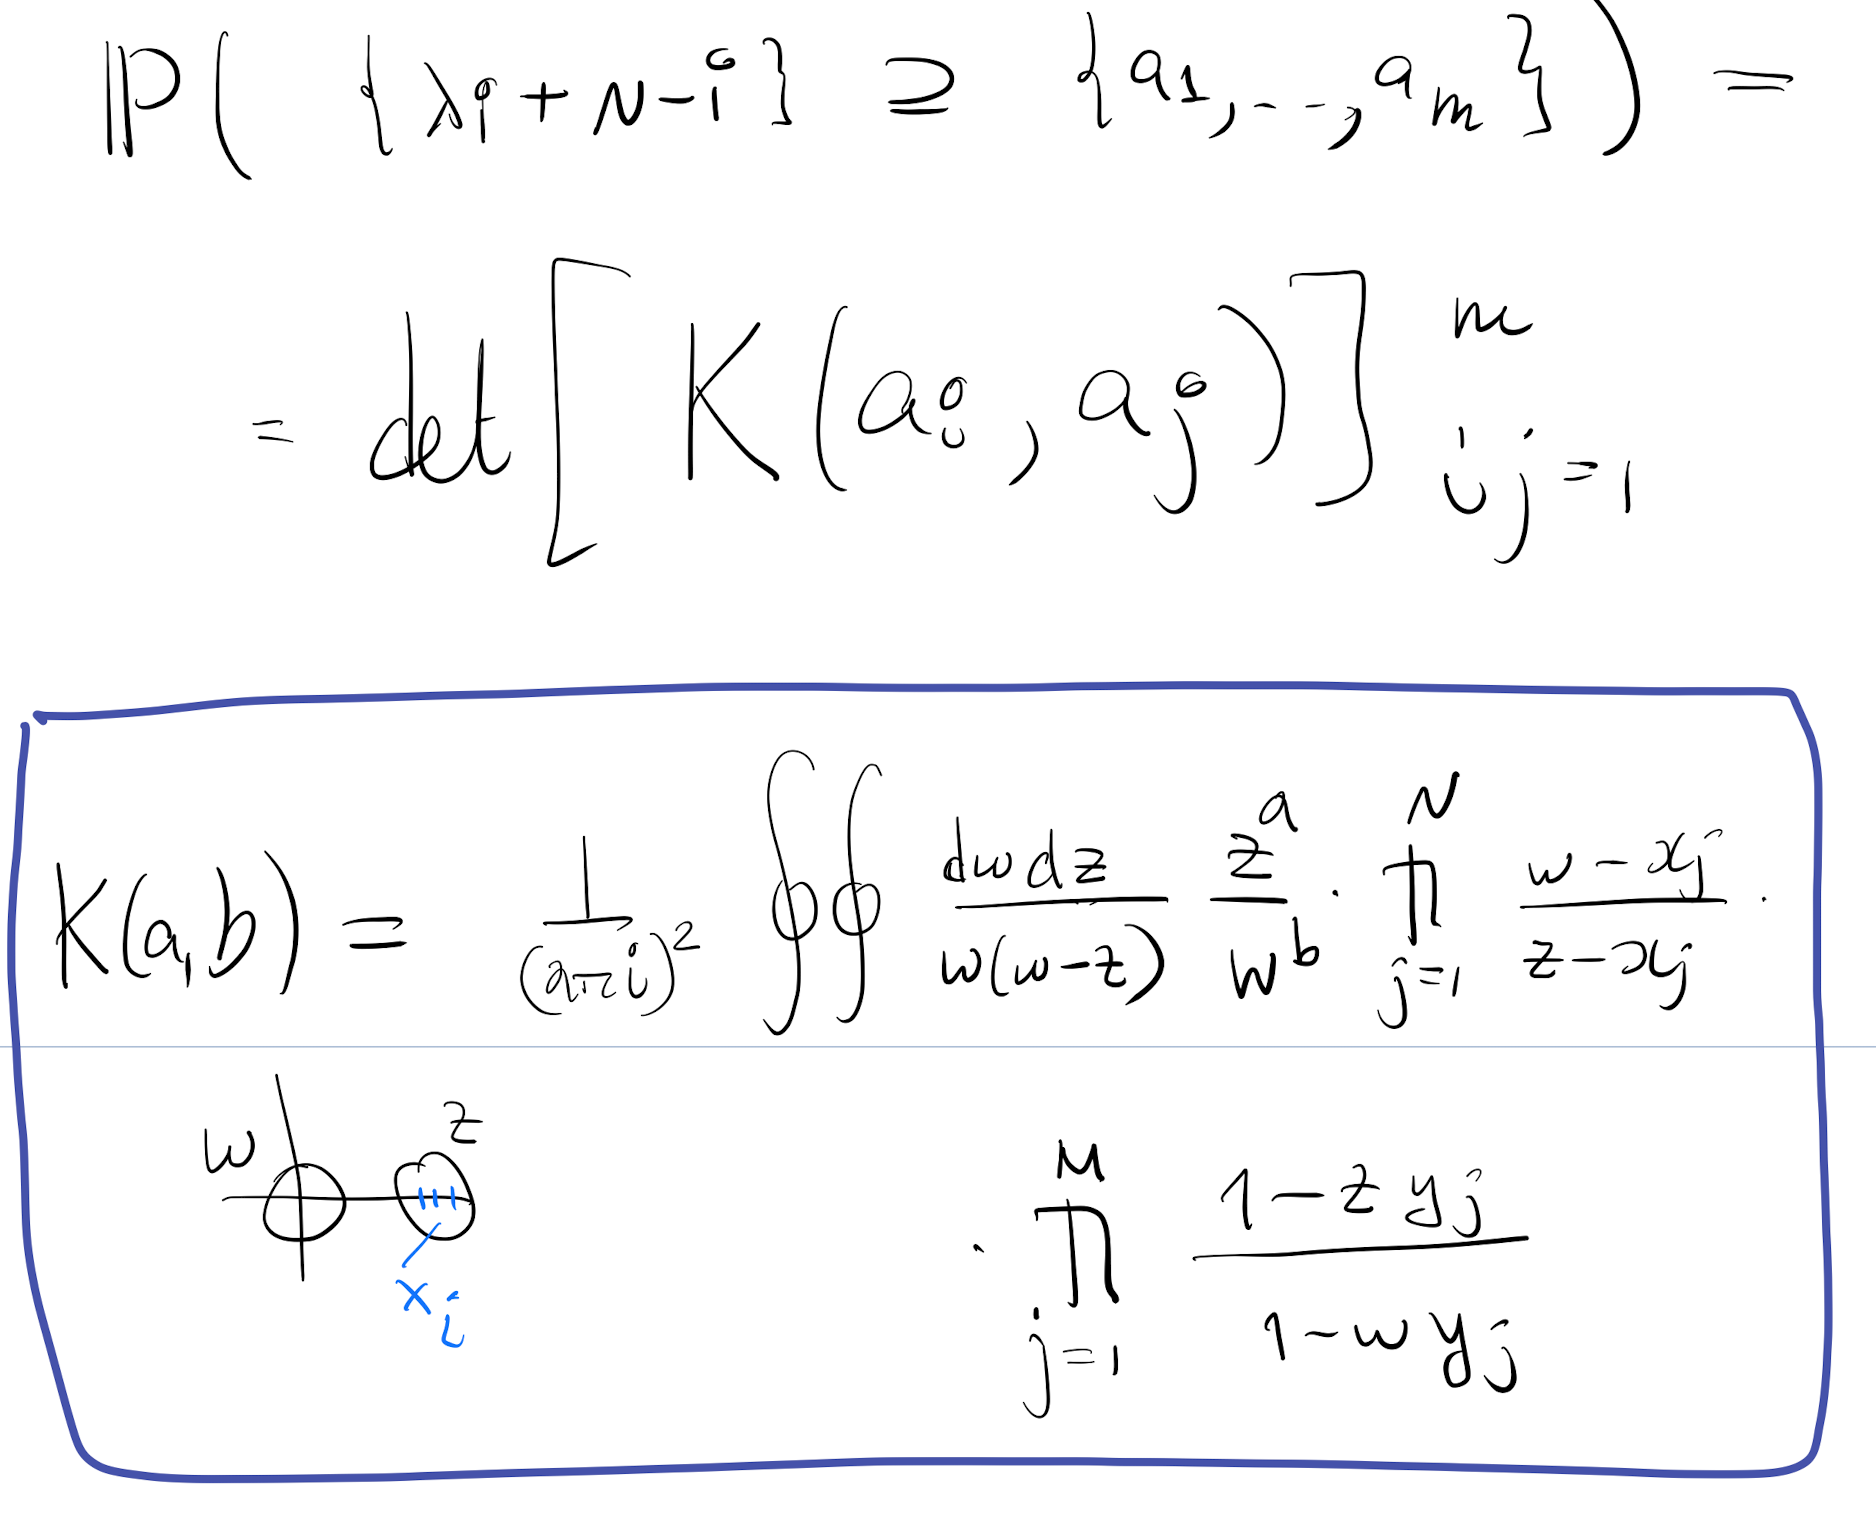 ℙ( {λᵢ + N − i} ⊇ {a₁, ..., aₘ} ) =
= det [ K(aᵢ, aⱼ) ]ᵐ ᵢ ⱼ ₌ ₁
K(a,b) = 1/(2πi)² ∮∮ dw dz / w(w−z) z^a / w^b · ∏_{j=1}^{N} (w − xⱼ)/(z − xⱼ) ·
w z
xᵢ
· ∏_{j=1}^{M} (1 − z yⱼ)/(1 − w yⱼ)